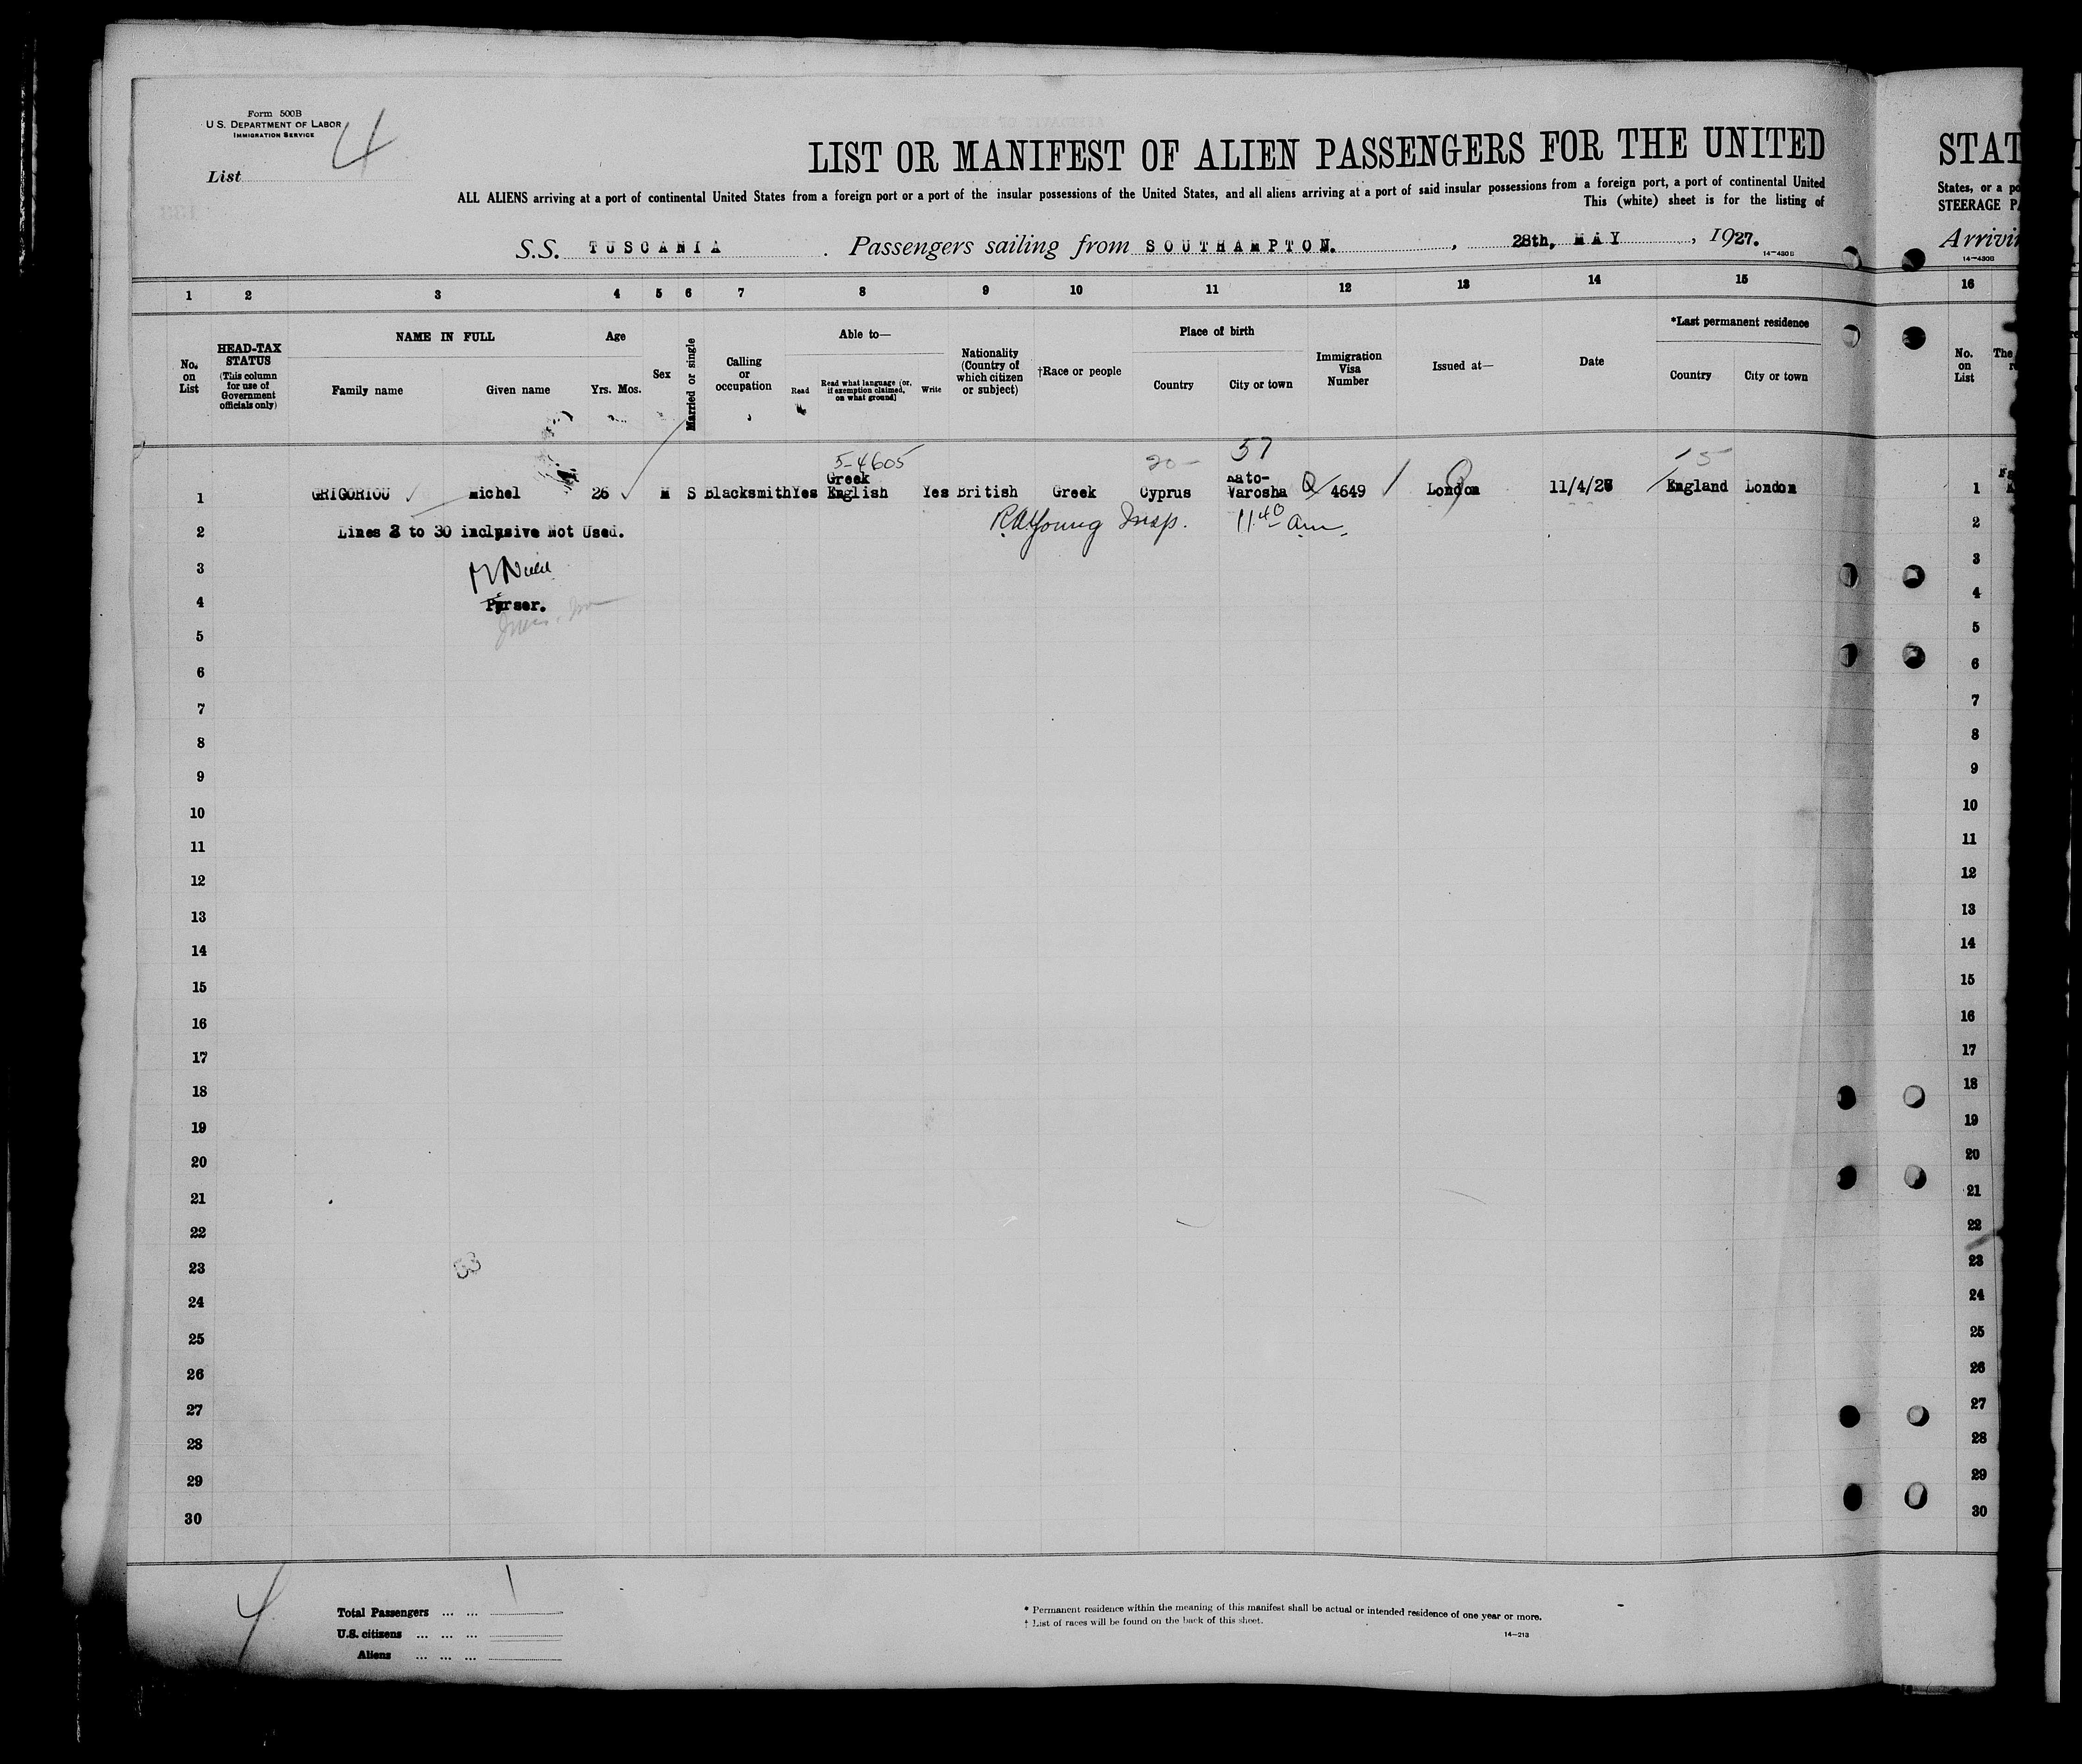 Form 500B
U.S. DEPARTMENT OF LABOR
IMMIGRATION SERVICE
List 4
LIST OR MANIFEST OF ALIEN PASSENGERS FOR THE UNITED
ALL ALIENS arriving at a port of continental United States from a foreign port or a port of the insular possessions of the United States, and all aliens arriving at a port of said insular possessions from a foreign port, a port of continental United
This (white) sheet is for the listing of
S.S. TUSCANIA . Passengers sailing from SOUTHAMPTON. , 28th, MAY , 1927.
14-430B
1 2 3 4 5 6 7 8 9 10 11 12 13 14 15
No. on List
HEAD-TAX STATUS (This column for use of Government officials only)
NAME IN FULL
Family name Given name
Age
Yrs. Mos.
Sex
Married or single
Calling or occupation
Able to—
Read
Read what language (or, if exemption claimed, on what ground)
Write
Nationality (Country of which citizen or subject)
†Race or people
Place of birth
Country City or town
Immigration Visa Number
Issued at—
Date
*Last permanent residence
Country City or town
5-4605 20- 57 15
1 GRIGORIOU Michel 26 M S Blacksmith Yes Greek English Yes British Greek Cyprus Kato-Varosha Q 4649 London 11/4/27 England London
2 Lines 2 to 30 inclusive Not Used. R A Young Insp. 11 40 am.
3
4 Purser.
5
6
7
8
9
10
11
12
13
14
15
16
17
18
19
20
21
22
23
24
25
26
27
28
29
30
4
Total Passengers ... ... 1
U.S. citizens ... ... ...
Aliens ... ... ...
* Permanent residence within the meaning of this manifest shall be actual or intended residence of one year or more.
† List of races will be found on the back of this sheet.
14-213
STAT
States, or a po
STEERAGE PA
Arrivin
14-430B
16
No. on List
The
1
2
3
4
5
6
7
8
9
10
11
12
13
14
15
16
17
18
19
20
21
22
23
24
25
26
27
28
29
30